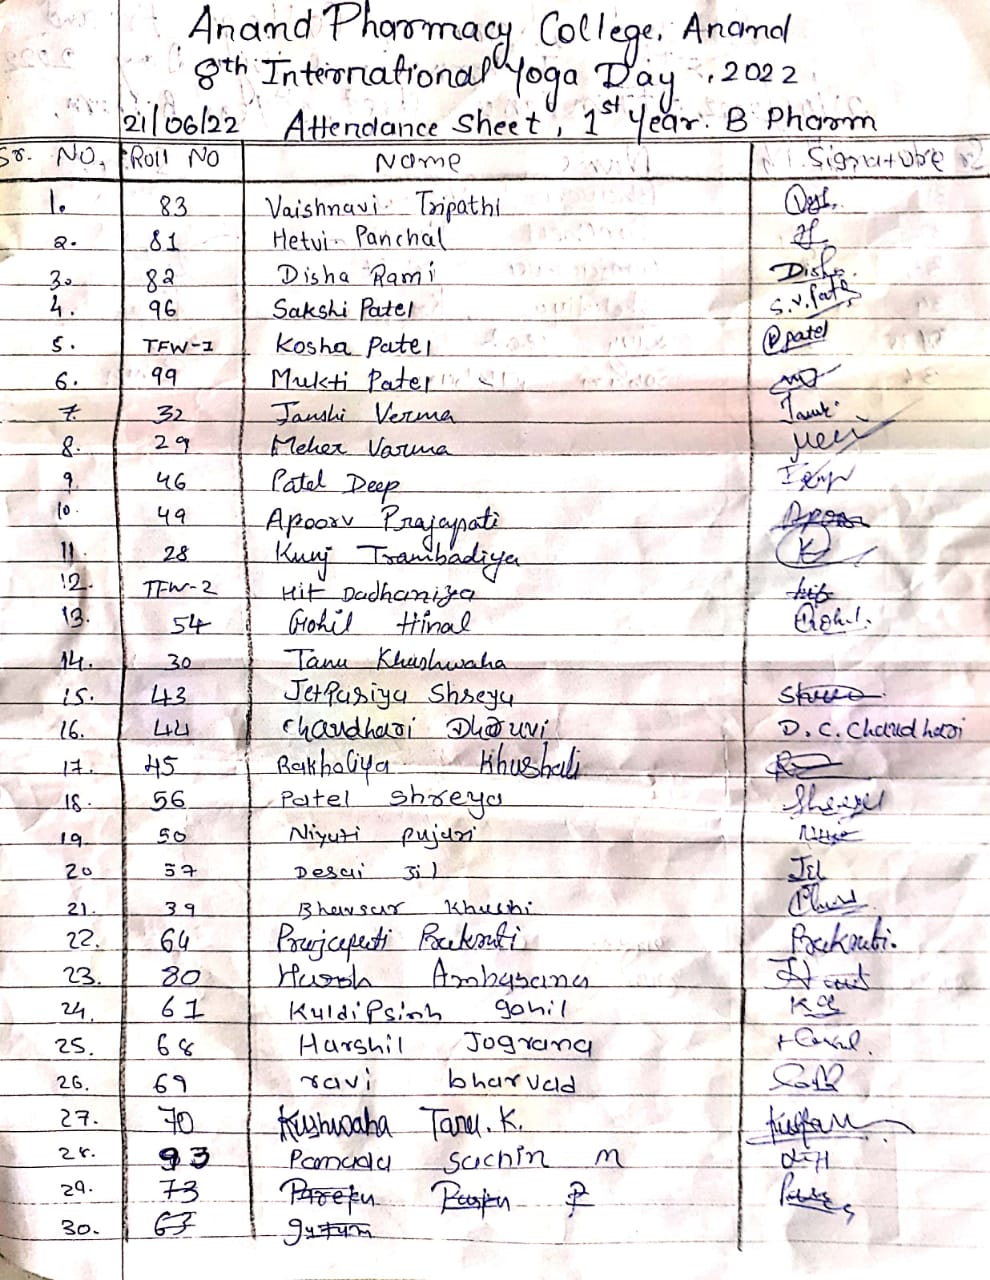 Anand Pharmacy College, Anand
8th International Yoga Day, 2022
21/06/22 Attendance Sheet, 1st Year. B Pharm
Sr. No. Roll No Name Signature
1. 83 Vaishnavi Tripathi
2. 81 Hetvi Panchal
3. 82 Disha Rami Disha.
4. 96 Sakshi Patel S.V.Patel
5. TFW-1 Kosha Patel Patel
6. 99 Mukti Patel
7. 32 Janshi Verma
8. 29 Meher Varma
9 46 Patel Deep
10 49 Apoorv Prajapati Apoorv
11 28 Kunj Trambadiya K
12. TFW-2 Hit Dadhaniya hit
13. 54 Gohil Hinal Gohil.
14. 30 Tanu Khushwaha
15. 43 Jetpariya Shreya
16. 44 Chaudhari Dhruvi D.C.Chaudhari
17. 45 Rakholiya Khushali
18. 56 Patel Shreya Shreya
19. 50 Niyati Pujari
20 57 Desai Jil Jil
21. 39 Bhavsar Khushi
22. 64 Prajapati Prakruti Prakruti.
23. 80 Harsh Ambasana
24. 61 Kuldipsinh gohil KG
25. 68 Harshil Jograna
26. 69 ravi bharvad
27. 70 Kushwaha Tanu.K.
28. 93 Pamada Sachin M
29. 73 P
30. 67